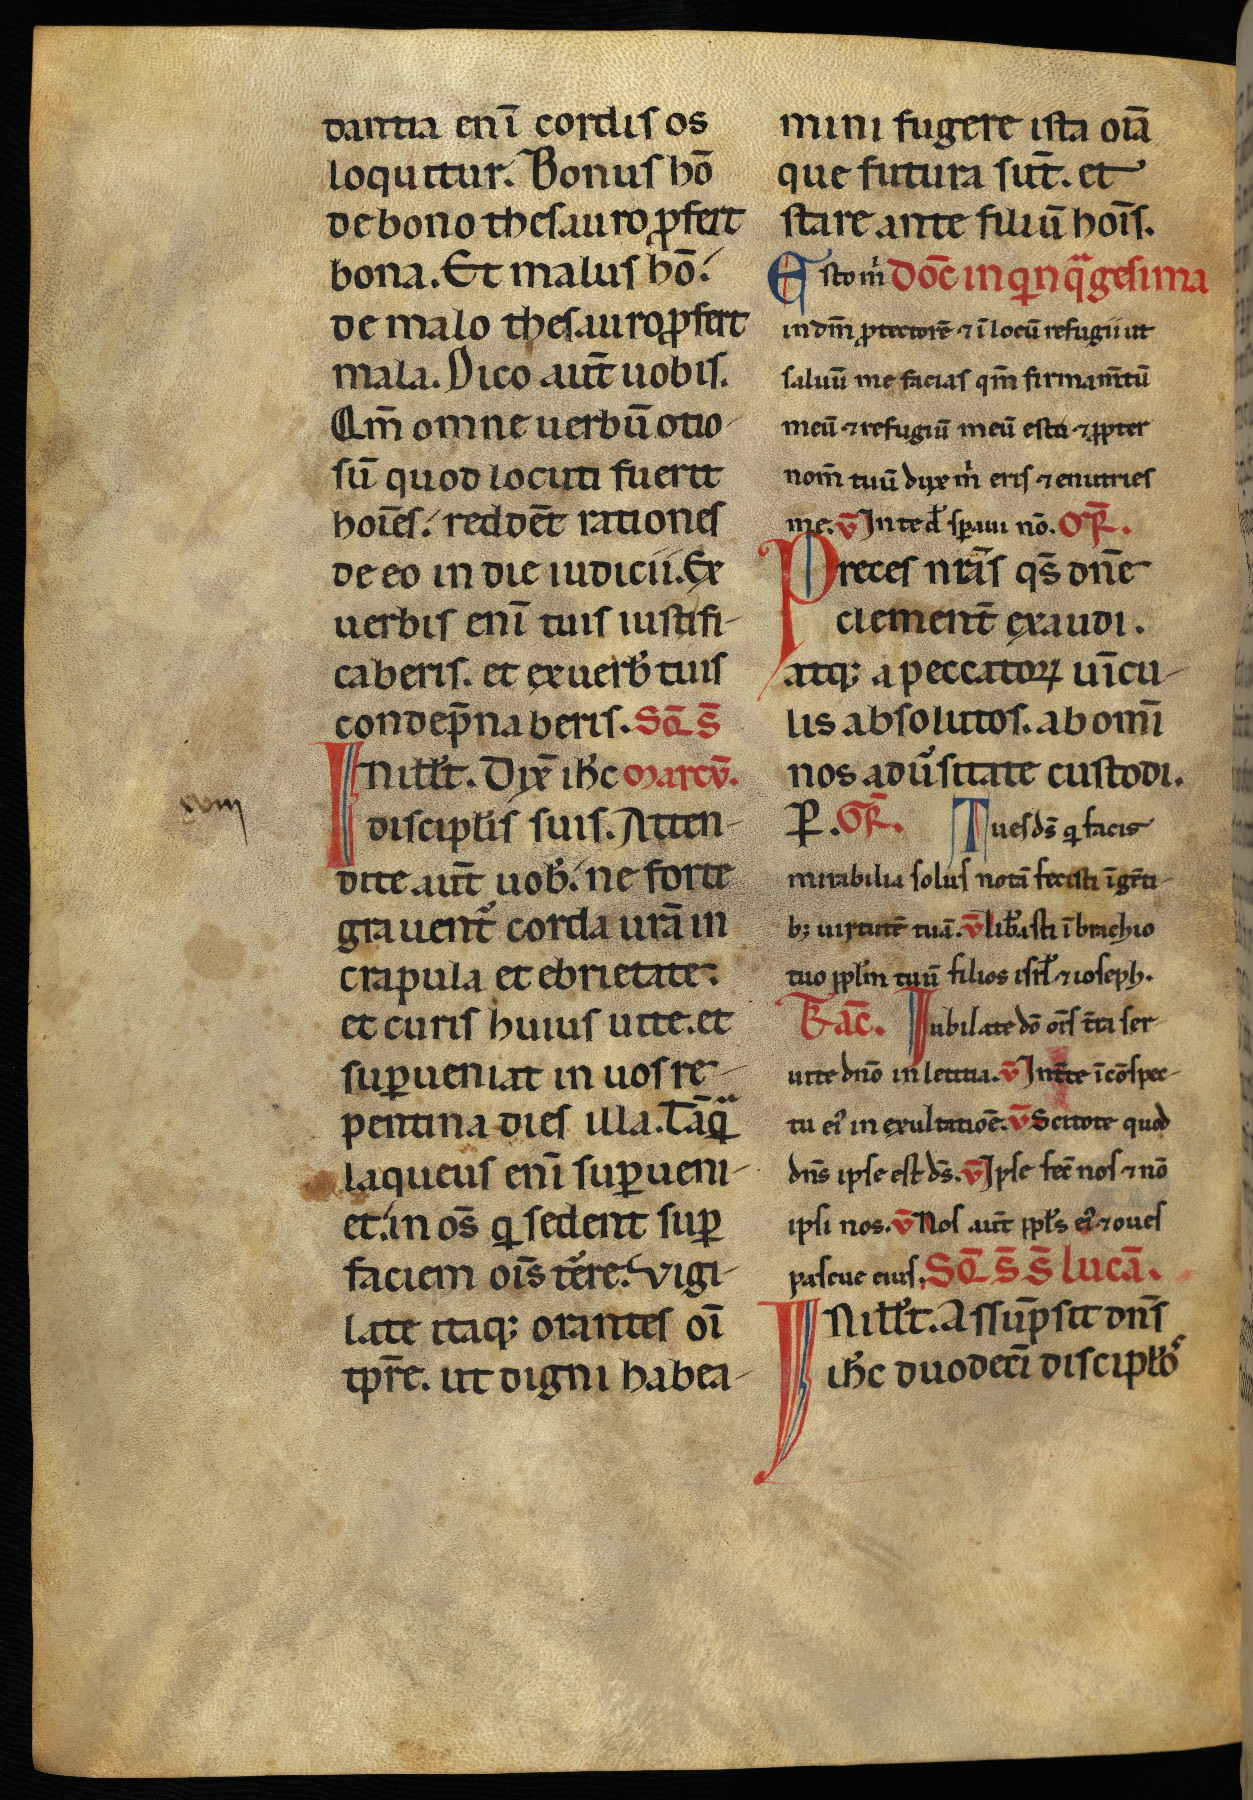 dantia enī cordis os
loquitur. Bonus hō
de bono thesauro ꝓfert
bona. Et malus hō.
de malo thesauro ꝓfert
mala. Dico aut̄ uobis.
Qm̄ omne uerbū otio-
sū quod locuti fuerit
hoīes. reddēt rationes
de eo in die iudicii. Ex
uerbis enī tuis iustifi-
caberis. et ex uerb̄ tuis
condep̄naberis. SC̄D S̄
IN illo t̄. Dix̄ ih̄c marcū.
discipl̄is suis. Atten-
dite aut̄ uob̄. ne forte
grauent᷑ corda ur̄a in
crapula et ebrietate.
et curis huius uite. et
suꝑueniat in uos re-
pentina dies illa. Tāqᷓ
laqueus enī suꝑueni-
et. in os̄ q̇ sedent suꝑ
faciem ois̄ terre. Vigi-
late itaq; orantes oī
tp̄re. ut digni habea-
mini fugere ista oīa
que futura sūt. et
stare ante filiū hoīs.
Esto m̄ Doc̄ in qinqᷓgesima
in dm̄ ꝓtectorē ⁊ ī locū refugii ut
saluū me facias qm̄ firmam̄tū
meū ⁊ refugiū meū es tu ⁊ ꝓpter
nom̄ tuū dux m̄ eris ⁊ enutries
me. V̄ In te d̄ speraui nō. OR̄.
Preces nr̄as qs̄ dn̄e
clement̄ exaudi.
atq; a peccatoꝝ uīcu-
lis absolutos. ab omī
nos adūsitate custodi.
P. GR̄. Tu es ds̄ q̇ facis
mirabilia solus notā fecisti ī gēti-
b; uirtutē tuā. V̄ lib̄asti ī brachio
tuo ppl̄m tuū filios isrl̄ ⁊ ioseph.
Trac̄. Iubilate dō ois̄ t̄ra ser-
uite dn̄o in letitia. V̄ Intrate ī cōspec-
tu ei᷒ in exultatiōe. V̄ Scitote quod
dn̄s ipse est ds̄. V̄ Ipse fec̄ nos ⁊ nō
ipsi nos. V̄ Nos aut̄ ppl̄s ei᷒ ⁊ oues
pascue eius. SC̄D S̄ S̄ lucā.
IN illo t̄. Assūpsit dn̄s
ih̄c duodecī discipl̄os